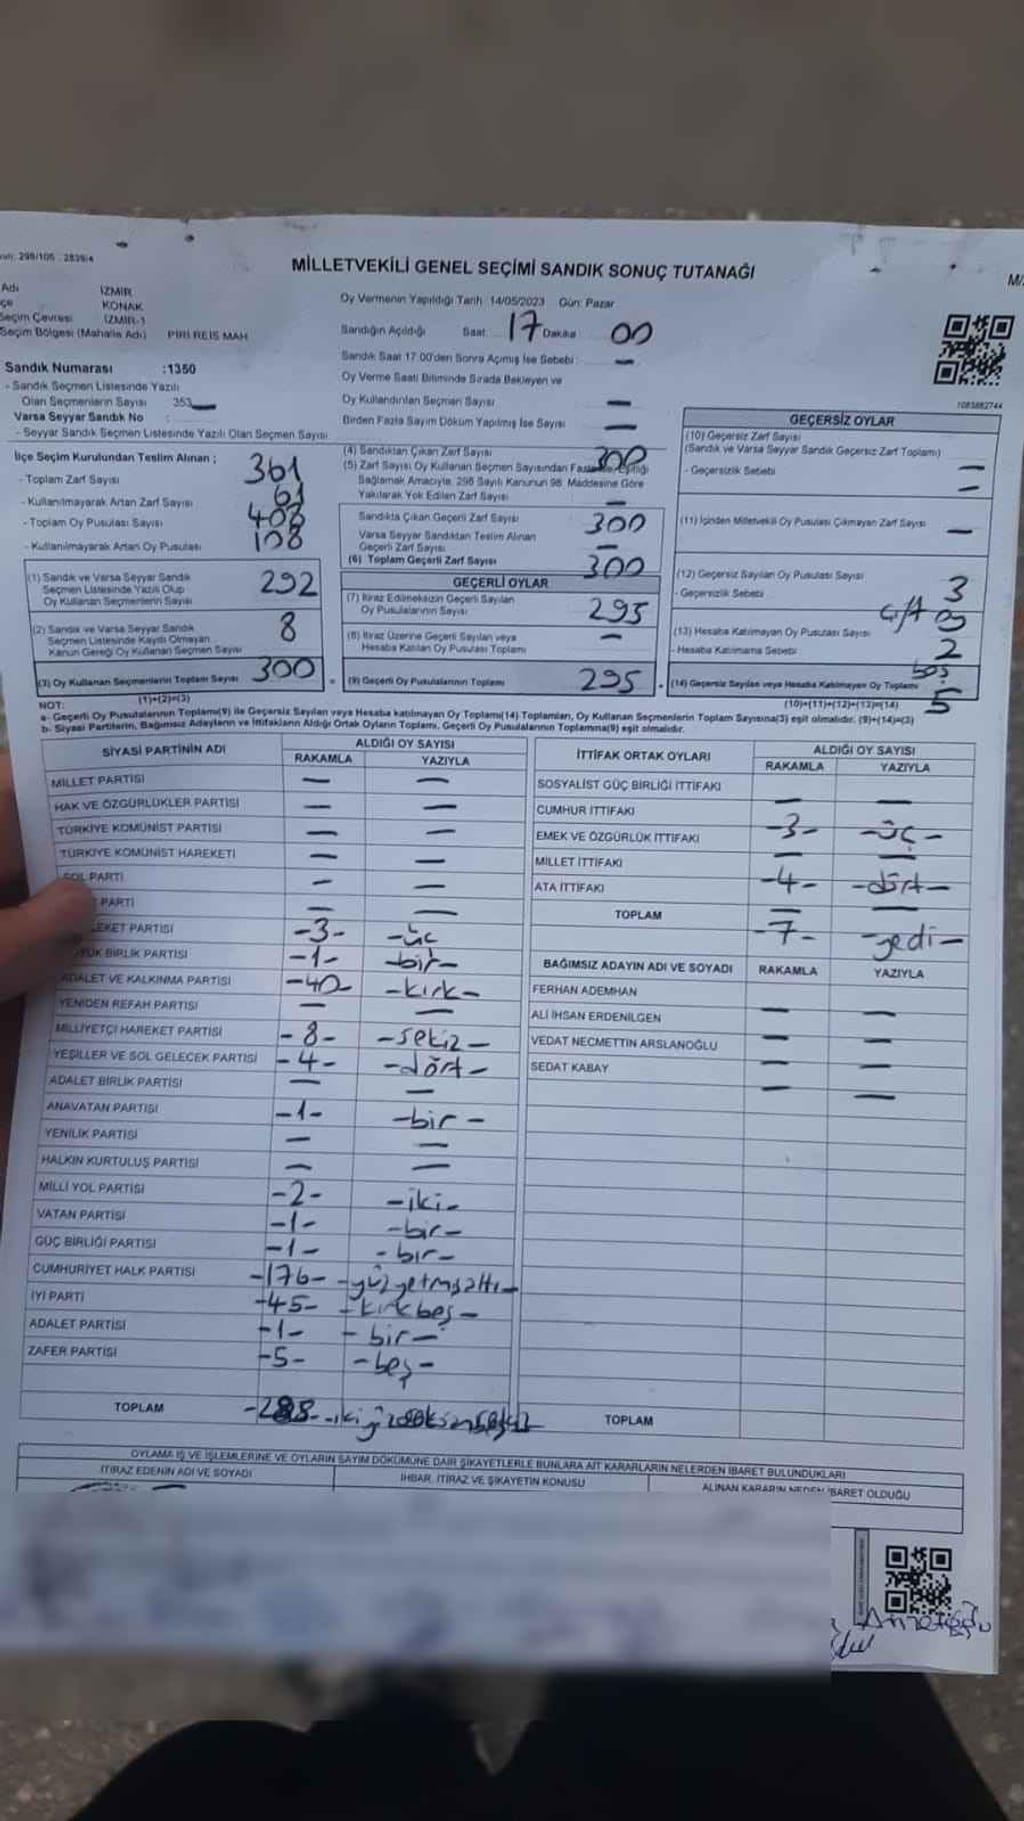 298/105 - 2839/4
MİLLETVEKİLİ GENEL SEÇİMİ SANDIK SONUÇ TUTANAĞI
Adı İZMİR
KONAK
Seçim Çevresi İZMİR-1
Seçim Bölgesi (Mahalle Adı) PİRİ REİS MAH
Sandık Numarası :1350
- Sandık Seçmen Listesinde Yazılı
Olan Seçmenlerin Sayısı 353
Varsa Seyyar Sandık No :
- Seyyar Sandık Seçmen Listesinde Yazılı Olan Seçmen Sayısı
Oy Vermenin Yapıldığı Tarih 14/05/2023 Gün: Pazar
Sandığın Açıldığı Saat: 17 Dakika 00
Sandık Saat 17.00'den Sonra Açılmış İse Sebebi: —
Oy Verme Saati Bitiminde Sırada Bekleyen ve
Oy Kullandırılan Seçmen Sayısı —
Birden Fazla Sayım Döküm Yapılmış İse Sayısı —
1083882744
İlçe Seçim Kurulundan Teslim Alınan ;
- Toplam Zarf Sayısı 361
- Kullanılmayarak Artan Zarf Sayısı 61
- Toplam Oy Pusulası Sayısı 403
- Kullanılmayarak Artan Oy Pusulası 108
(1) Sandık ve Varsa Seyyar Sandık
Seçmen Listesinde Yazılı Olup
Oy Kullanan Seçmenlerin Sayısı 292
(2) Sandık ve Varsa Seyyar Sandık
Seçmen Listesinde Kaydı Olmayan
Kanun Gereği Oy Kullanan Seçmen Sayısı 8
(3) Oy Kullanan Seçmenlerin Toplam Sayısı 300
(1)+(2)=(3)
(4) Sandıktan Çıkan Zarf Sayısı 300
(5) Zarf Sayısı Oy Kullanan Seçmen Sayısından Fazla Eşitliği
Sağlamak Amacıyla, 298 Sayılı Kanunun 98. Maddesine Göre
Yakılarak Yok Edilen Zarf Sayısı —
Sandıkta Çıkan Geçerli Zarf Sayısı 300
Varsa Seyyar Sandıktan Teslim Alınan
Geçerli Zarf Sayısı —
(6) Toplam Geçerli Zarf Sayısı 300
GEÇERLİ OYLAR
(7) İtiraz Edilmeksizin Geçerli Sayılan
Oy Pusulalarının Sayısı 295
(8) İtiraz Üzerine Geçerli Sayılan veya
Hesaba Katılan Oy Pusulası Toplamı —
(9) Geçerli Oy Pusulalarının Toplamı 295
GEÇERSİZ OYLAR
(10) Geçersiz Zarf Sayısı
(Sandık ve Varsa Seyyar Sandık Geçersiz Zarf Toplamı) —
- Geçersizlik Sebebi —
(11) İçinden Milletvekili Oy Pusulası Çıkmayan Zarf Sayısı —
(12) Geçersiz Sayılan Oy Pusulası Sayısı 3
- Geçersizlik Sebebi
(13) Hesaba Katılmayan Oy Pusulası Sayısı 2
- Hesaba Katılmama Sebebi boş
(14) Geçersiz Sayılan veya Hesaba Katılmayan Oy Toplamı 5
(10)+(11)+(12)+(13)=(14)
NOT:
a- Geçerli Oy Pusulalarının Toplamı(9) ile Geçersiz Sayılan veya Hesaba katılmayan Oy Toplamı(14) Toplamları, Oy Kullanan Seçmenlerin Toplam Sayısına(3) eşit olmalıdır. (9)+(14)=(3)
b- Siyasi Partilerin, Bağımsız Adayların ve İttifakların Aldığı Ortak Oyların Toplamı, Geçerli Oy Pusulalarının Toplamına(9) eşit olmalıdır.
SİYASİ PARTİNİN ADI ALDIĞI OY SAYISI
RAKAMLA YAZIYLA
MİLLET PARTİSİ — —
HAK VE ÖZGÜRLÜKLER PARTİSİ — —
TÜRKİYE KOMÜNİST PARTİSİ — —
TÜRKİYE KOMÜNİST HAREKETİ — —
SOL PARTİ — —
PARTİ — —
PARTİSİ -3- -üç
BİRLİK PARTİSİ -1- -bir-
ADALET VE KALKINMA PARTİSİ -40- -kırk-
YENİDEN REFAH PARTİSİ — —
MİLLİYETÇİ HAREKET PARTİSİ -8- -sekiz-
YEŞİLLER VE SOL GELECEK PARTİSİ -4- -dört-
ADALET BİRLİK PARTİSİ — —
ANAVATAN PARTİSİ -1- -bir-
YENİLİK PARTİSİ — —
HALKIN KURTULUŞ PARTİSİ — —
MİLLİ YOL PARTİSİ -2- -iki-
VATAN PARTİSİ -1- -bir-
GÜÇ BİRLİĞİ PARTİSİ -1- -bir-
CUMHURİYET HALK PARTİSİ -176- -yüzyetmişaltı-
İYİ PARTİ -45- -kırkbeş-
ADALET PARTİSİ -1- -bir-
ZAFER PARTİSİ -5- -beş-
TOPLAM -288-
İTTİFAK ORTAK OYLARI ALDIĞI OY SAYISI
RAKAMLA YAZIYLA
SOSYALİST GÜÇ BİRLİĞİ İTTİFAKI — —
CUMHUR İTTİFAKI -3- -üç-
EMEK VE ÖZGÜRLÜK İTTİFAKI — —
MİLLET İTTİFAKI -4- -dört-
ATA İTTİFAKI — —
TOPLAM -7- -yedi-
BAĞIMSIZ ADAYIN ADI VE SOYADI RAKAMLA YAZIYLA
FERHAN ADEMHAN — —
ALİ İHSAN ERDENİLGEN — —
VEDAT NECMETTİN ARSLANOĞLU — —
SEDAT KABAY — —
TOPLAM
OYLAMA İŞ VE İŞLEMLERİNE VE OYLARIN SAYIM DÖKÜMÜNE DAİR ŞİKAYETLERLE BUNLARA AİT KARARLARIN NELERDEN İBARET BULUNDUKLARI
İTİRAZ EDENİN ADI VE SOYADI İHBAR, İTİRAZ VE ŞİKAYETİN KONUSU ALINAN KARARIN NEDEN İBARET OLDUĞU